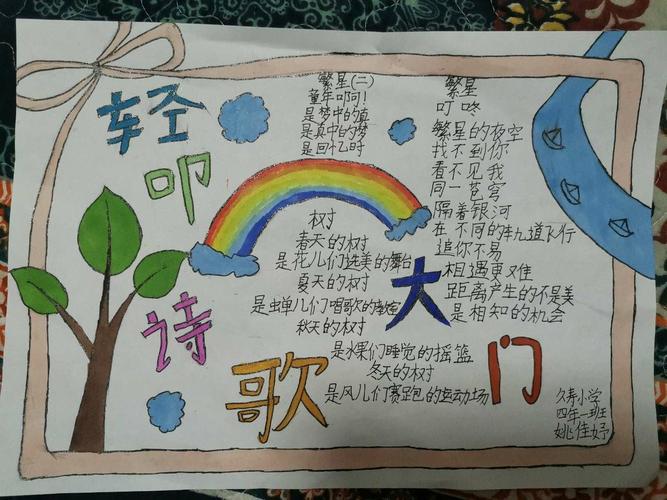 轻叩诗歌大门
繁星(二)
童年叩阿!
是梦中的真
是真中的梦
是回忆时
树
春天的树
是花儿们选美的舞台
夏天的树
是蝉儿们唱歌的教室
秋天的树
是水果们睡觉的摇篮
冬天的树
是风儿们赛跑的运动场
繁星
叮咚
繁星的夜空
找不到你
看不见我
同一苍穹
隔着银河
在不同的轨道飞行
追你不易
相遇更难
距离产生的不是美
是相知的机会
久寿小学
四年一班
姚佳妤